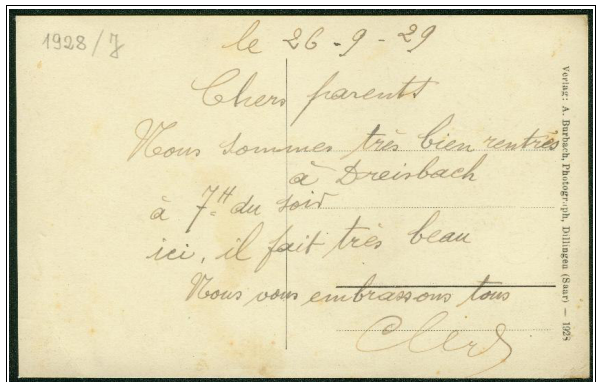 1928/7
le 26-9-29
Chers parents
Nous sommes très bien rentrés
à Dreisbach
à 7H du soir
ici, il fait très beau
Nous vous embrassons tous
Verlag: A. Burbach, Photograph, Dillingen (Saar) — 1928